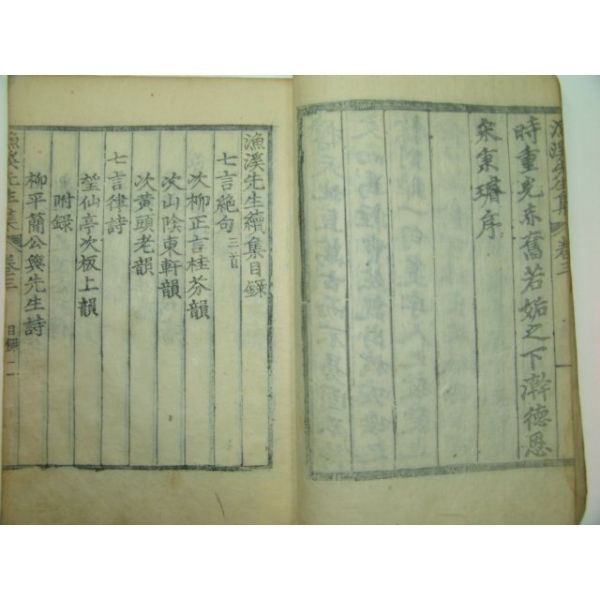 漁溪先生集 卷三 一
時重光赤奮若姤之下澣德恩
宋秉璿序
漁溪先生續集目錄
七言絶句三首
次柳正言桂芬韻
次山陰東軒韻
次黃頭老韻
七言律詩
望仙亭次板上韻
附錄
柳平簡公與先生詩
漁溪先生集 卷三 目錄 二